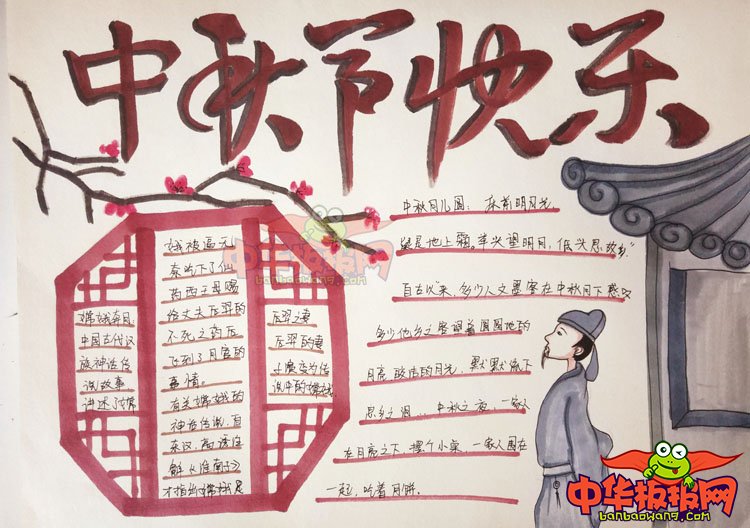 中秋节快乐
嫦娥奔月
中国古代汉
族神话传
说故事.
讲述了嫦
娥被逼无
奈吃下了仙
药西王母赐
给丈夫后羿的
不死之药后
飞到了月宫的
事情。
有关嫦娥的
神话传说,自
东汉,高诱注
解《淮南子》
才指出嫦娥是
后羿之妻
后羿的妻
中秋月儿圆: 床前明月光
疑是地上霜。举头望明月,低头思故乡"
自古以来,多少人文墨客在中秋月下感叹
多少他乡之客望着圆圆地的
月亮 皎洁的月光,默默流下
思乡之泪...中秋之夜,一家人
在月亮之下 摆个小桌,一家人围在
一起,吃着月饼.
中华板报网
banbaowang.com
中华板报网
banbaowang.com